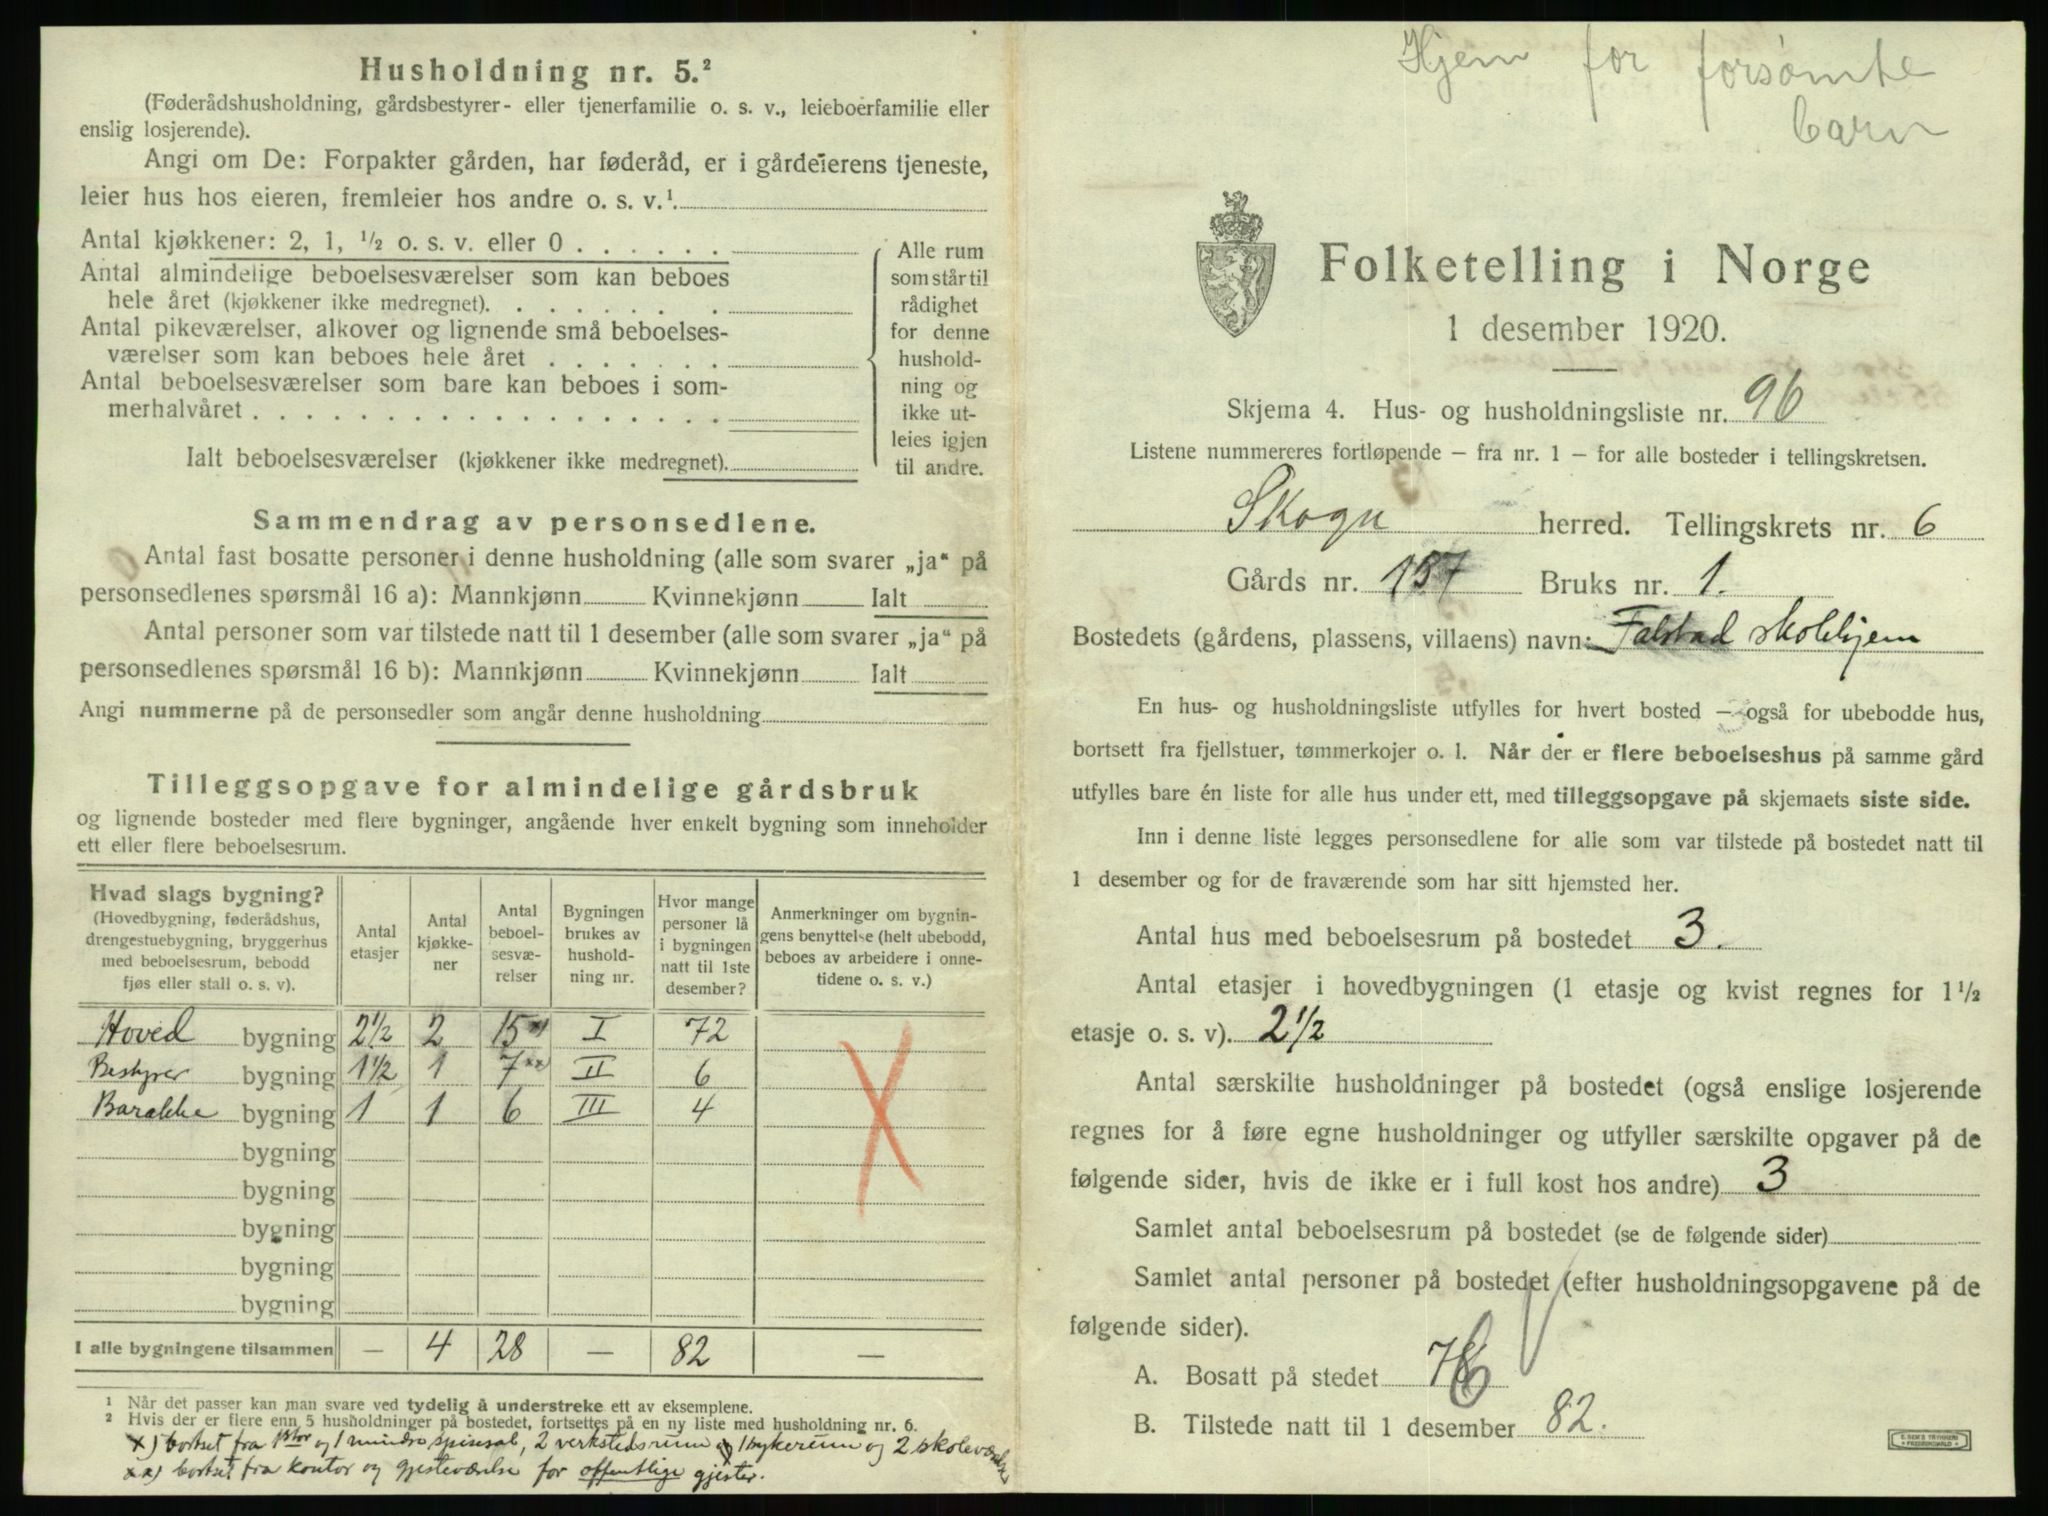 Husholdning nr. 5.²
(Føderådshusholdning, gårdsbestyrer- eller tjenerfamilie o. s. v., leieboerfamilie eller
enslig losjerende).
Angi om De: Forpakter gården, har føderåd, er i gårdeierens tjeneste,
leier hus hos eieren, fremleier hos andre o. s. v.¹.
Antal kjøkkener: 2, 1, ½ o. s. v. eller 0 . . . . . .
Antal almindelige beboelsesværelser som kan beboes
hele året (kjøkkener ikke medregnet). . . . . . .
Antal pikeværelser, alkover og lignende små beboelses-
værelser som kan beboes hele året . . . . . . .
Antal beboelsesværelser som bare kan beboes i som-
merhalvåret . . . . . . . . . . . . . . . . . .
Ialt beboelsesværelser (kjøkkener ikke medregnet).
Alle rum
som står til
rådighet
for denne
hushold-
ning og
ikke ut-
leies igjen
til andre.
Sammendrag av personsedlene.
Antal fast bosatte personer i denne husholdning (alle som svarer „ja“ på
personsedlenes spørsmål 16 a): Mannkjønn Kvinnekjønn Ialt
Antal personer som var tilstede natt til 1 desember (alle som svarer „ja“ på
personsedlenes spørsmål 16 b): Mannkjønn Kvinnekjønn Ialt
Angi nummerne på de personsedler som angår denne husholdning
Tilleggsopgave for almindelige gårdsbruk
og lignende bosteder med flere bygninger, angående hver enkelt bygning som inneholder
ett eller flere beboelsesrum.
Hvad slags bygning?
(Hovedbygning, føderådshus,
drengestuebygning, bryggerhus
med beboelsesrum, bebodd
fjøs eller stall o. s. v).
Antal
etasjer
Antal
kjøkke-
ner
Antal
beboel-
sesvæ-
relser
Bygningen
brukes av
hushold-
ning nr.
Hvor mange
personer lå
i bygningen
natt til 1ste
desember?
Anmerkninger om bygnin-
gens benyttelse (helt ubebodd,
beboes av arbeidere i onne-
tidene o. s. v.)
Hoved bygning 2½ 2 15 x) I 72
Bestyrer bygning 1½ 1 7 xx) II 6
Barakke bygning 1 1 6 III 4
bygning
bygning
bygning
bygning
bygning
I alle bygningene tilsammen — 4 28 — 82 —
¹ Når det passer kan man svare ved tydelig å understreke ett av eksemplene.
² Hvis der er flere enn 5 husholdninger på bostedet, fortsettes på en ny liste med husholdning nr. 6.
x) bortset fra 1 stor og 1 mindre spisesal, 2 verkstedsrum og 1 sykerum og 2 skoleværelse
xx) bortset fra kontor og gjesteværelse for offentlige gjester.
Hjem for forsømte
barn
Folketelling i Norge
1 desember 1920.
Skjema 4. Hus- og husholdningsliste nr. 96
Listene nummereres fortløpende – fra nr. 1 – for alle bosteder i tellingskretsen.
Skogn herred. Tellingskrets nr. 6
Gårds nr. 137 Bruks nr. 1.
Bostedets (gårdens, plassens, villaens) navn: Falstad skolehjem
En hus- og husholdningsliste utfylles for hvert bosted – også for ubebodde hus,
bortsett fra fjellstuer, tømmerkojer o. l. Når der er flere beboelseshus på samme gård
utfylles bare én liste for alle hus under ett, med tilleggsopgave på skjemaets siste side.
Inn i denne liste legges personsedlene for alle som var tilstede på bostedet natt til
1 desember og for de fraværende som har sitt hjemsted her.
Antal hus med beboelsesrum på bostedet 3.
Antal etasjer i hovedbygningen (1 etasje og kvist regnes for 1½
etasje o. s. v). 2½
Antal særskilte husholdninger på bostedet (også enslige losjerende
regnes for å føre egne husholdninger og utfyller særskilte opgaver på de
følgende sider, hvis de ikke er i full kost hos andre) 3
Samlet antal beboelsesrum på bostedet (se de følgende sider)
Samlet antal personer på bostedet (efter husholdningsopgavene på de
følgende sider).
A. Bosatt på stedet
B. Tilstede natt til 1 desember 82.